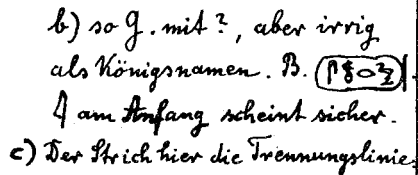 b) so G. mit ?, aber irrig
als Königsnamen. B.
am Anfang scheint sicher.
c) Der Strich hier die Trennungslinie.